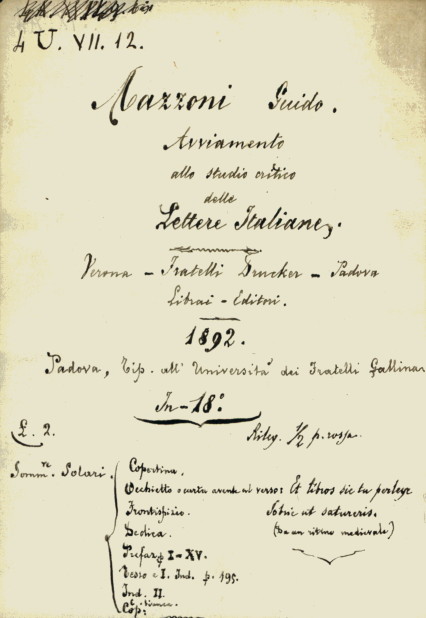 4 U. VII. 12.
Mazzoni Guido.
Avviamento
allo studio critico
delle
Lettere Italiane.
Verona - Fratelli Drucker - Padova
Librai - Editori.
1892.
Padova, Tip. all' Università dei Fratelli Gallina
In-18°
£. 2.
Rileg. 1/2 p. rossa.
Somm.re Solari.
Copertina.
Occhietto o carta avente al verso: Et libros sic tu perlege
Frontispizio. Sobrie ut satureris.
Dedica. (Da un ritmo medievale.)
Prefaz. p. I-XV.
Testo e I. Ind. p. 195.
Ind. II.